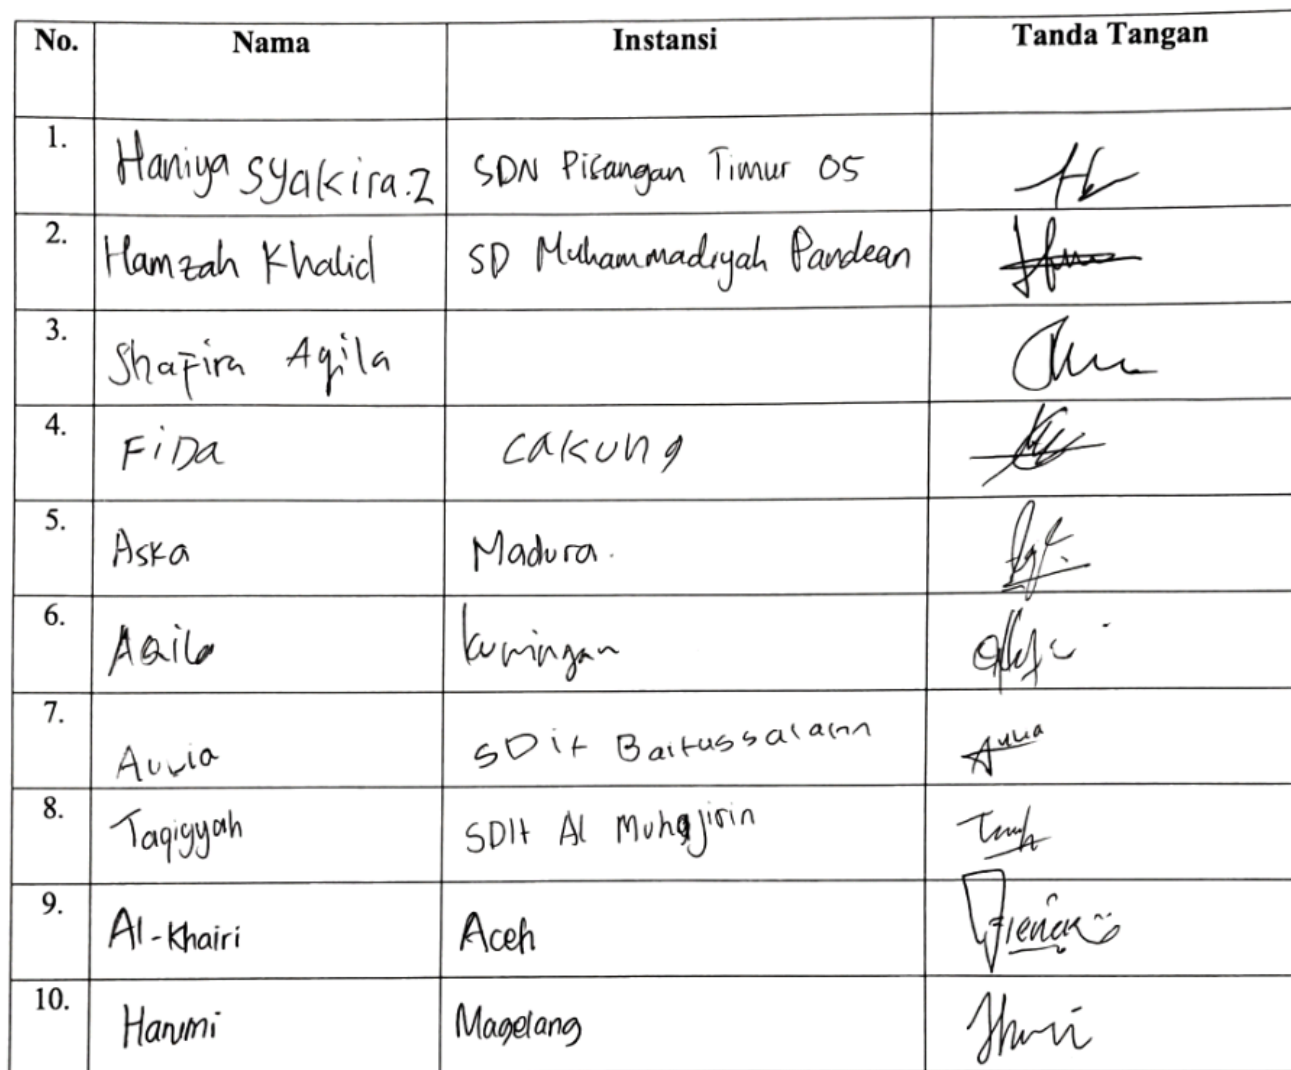 No. Nama Instansi Tanda Tangan
1. Haniya Syakira.Z SDN Pisangan Timur 05
2. Hamzah Khalid SD Muhammadiyah Pandean
3. Shafira Aqila
4. FiDa CAKUNg
5. Aska Madura.
6. AQila kuningan
7. Auvia SDit Baitussalam
8. Taqiyyah SDIt Al Muhajirin
9. Al-Khairi Aceh
10. Harumi Magelang